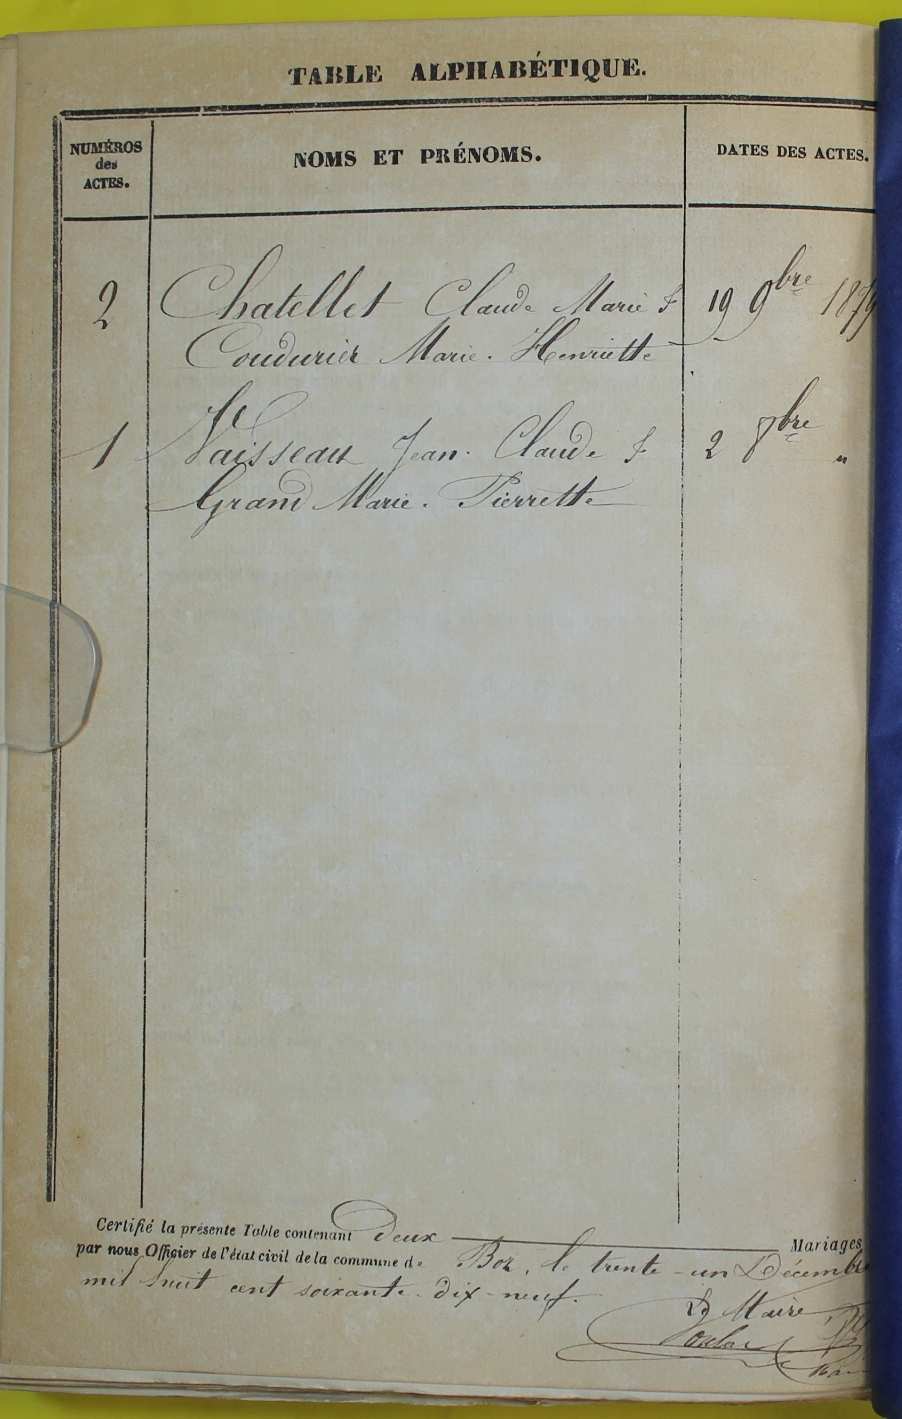 TABLE ALPHABÉTIQUE.
NUMÉROS
des
ACTES.
NOMS ET PRÉNOMS.
DATES DES ACTES.
2 Chatellet Claude Marie & 19 9bre 1879
Coudurier Marie Henriette
1 Vaisseau Jean Claude & 2 8bre "
Grand Marie Pierrette
Certifié la présente Table contenant deux Mariages
par nous Officier de l'état civil de la commune de Boz, le trente-un Décembre
mil huit cent soixante-dix-neuf.
Le Maire